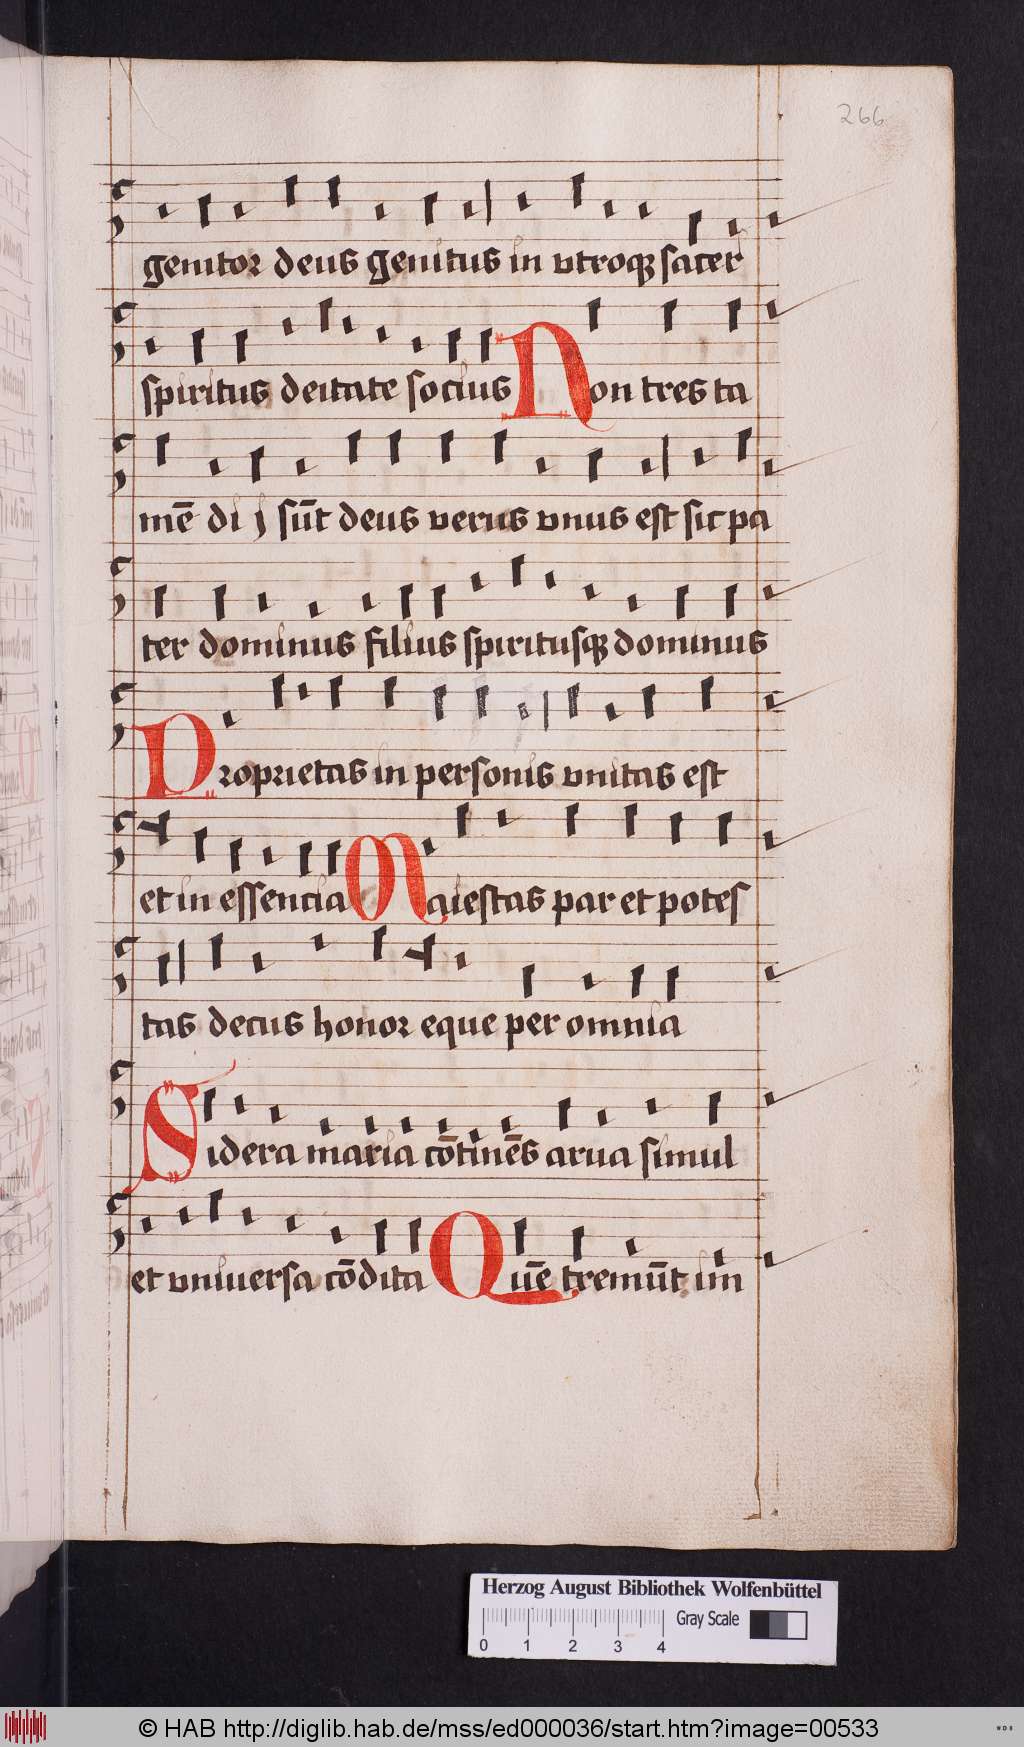 266
genitor deus genitus in vtroqꝫ sacer
spiritus deitate socius Non tres ta
mē dij sūt deus verus vnus est sic pa
ter dominus filius spiritusqꝫ dominus
Proprietas in personis vnitas est
et in essencia Maiestas par et potes
tas decus honor eque per omnia
Sidera maria cōtinēs arua simul
et vniuersa cōdita Quē tremūt im
Herzog August Bibliothek Wolfenbüttel
Gray Scale
0 1 2 3 4
© HAB http://diglib.hab.de/mss/ed000036/start.htm?image=00533